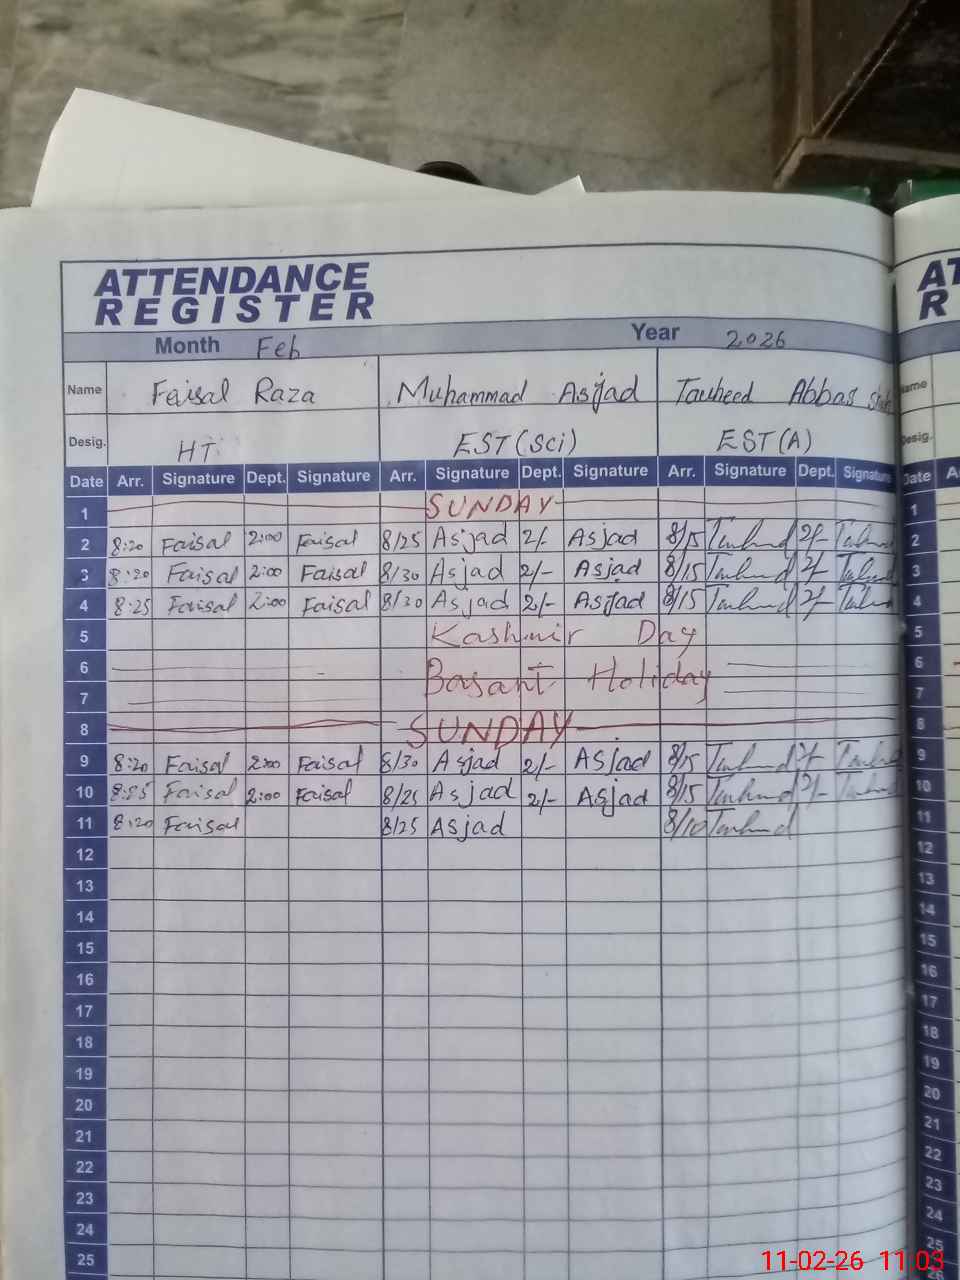 ATTENDANCE
REGISTER
Month Feb Year 2026
Name Faisal Raza Muhammad Asjad Tauheed Abbas
Desig. HT. EST(Sci) EST(A)
Date Arr. Signature Dept. Signature Arr. Signature Dept. Signature Arr. Signature Dept. Signature
1 SUNDAY
2 8:20 Faisal 2:00 Faisal 8/25 Asjad 2/- Asjad 8/15 2/-
3 8:20 Faisal 2:00 Faisal 8/30 Asjad 2/- Asjad 8/15 2/-
4 8:25 Faisal 2:00 Faisal 8/30 Asjad 2/- Asjad 8/15 2/-
5 Kashmir Day
6 Basant Holiday
7
8 SUNDAY
9 8:20 Faisal 2:00 Faisal 8/30 Asjad 2/- Asjad 8/15 2/-
10 8:25 Faisal 2:00 Faisal 8/25 Asjad 2/- Asjad 8/15 2/-
11 8:20 Faisal 8/25 Asjad 8/10
12
13
14
15
16
17
18
19
20
21
22
23
24
25
AT
R
Name
Desig.
Date
1
2
3
4
5
6
7
8
9
10
11
12
13
14
15
16
17
18
19
20
21
22
23
24
25
26
11-02-26 11:03